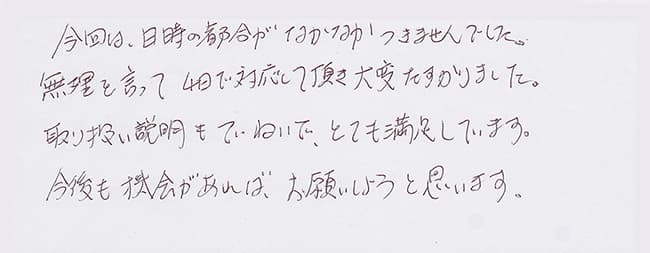 今回は、日時の都合がなかなかつきませんでした。
無理を言って 4日で対応して頂き大変たすかりました。
取り扱い説明もていねいで、とても満足しています。
今後も機会があれば、お願いしようと思います。